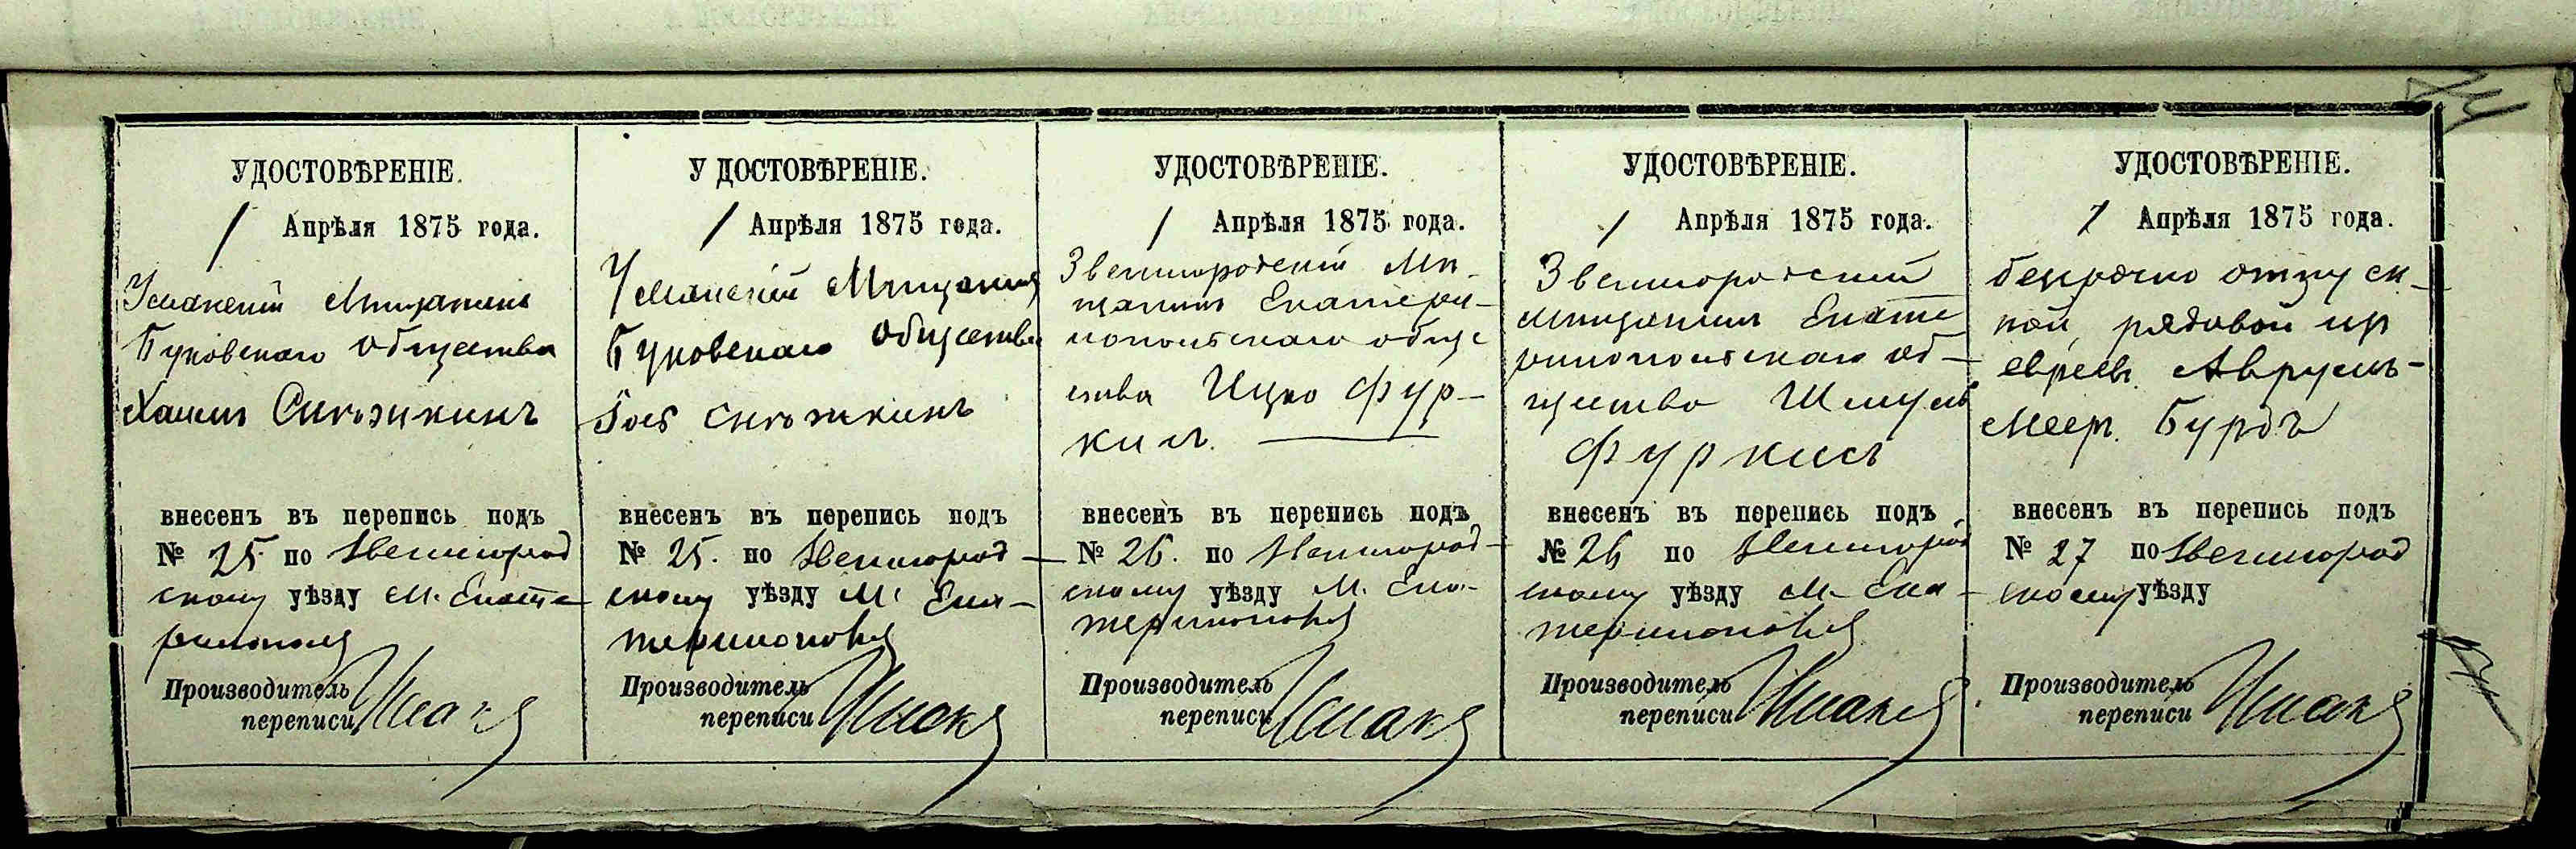 УДОСТОВѢРЕНІЕ.
1 Апрѣля 1875 года.
Уманскій Мѣщанинъ
Буковскаго общества
Хаимъ Снѣжкинъ
внесенъ въ перепись подъ
№ 25 по Звенигород
скому уѣзду М. Екате
ринополя
Производитель
переписи
УДОСТОВѢРЕНІЕ.
1 Апрѣля 1875 года.
Уманскій Мѣщанинъ
Буковскаго общества
Гось Снѣжкинъ
внесенъ въ перепись подъ
№ 25. по Звенигород-
скому уѣзду М. Ека-
теринополя
Производитель
переписи
УДОСТОВѢРЕНІЕ.
1 Апрѣля 1875 года.
Звенигородскій Мѣ-
щанинъ Екатери-
нопольскаго обще
ства Ицко Фур-
кис.
внесенъ въ перепись подъ
№ 26. по Звенигород-
скому уѣзду М. Ека-
теринополя
Производитель
переписи
УДОСТОВѢРЕНІЕ.
1 Апрѣля 1875 года.
Звенигородскій
мѣщанинъ Екате
ринопольскаго об-
щества Шмуль
Фуркисъ
внесенъ въ перепись подъ
№ 26 по Звенигород
скому уѣзду М. Ека-
теринополя
Производитель
переписи
УДОСТОВѢРЕНІЕ.
1 Апрѣля 1875 года.
безсрочно отпуск-
ной, рядовой изъ
евреевъ Аврумъ-
Меер. Бурдъ
внесенъ въ перепись подъ
№ 27 по Звенигород
скому уѣзду
Производитель
переписи